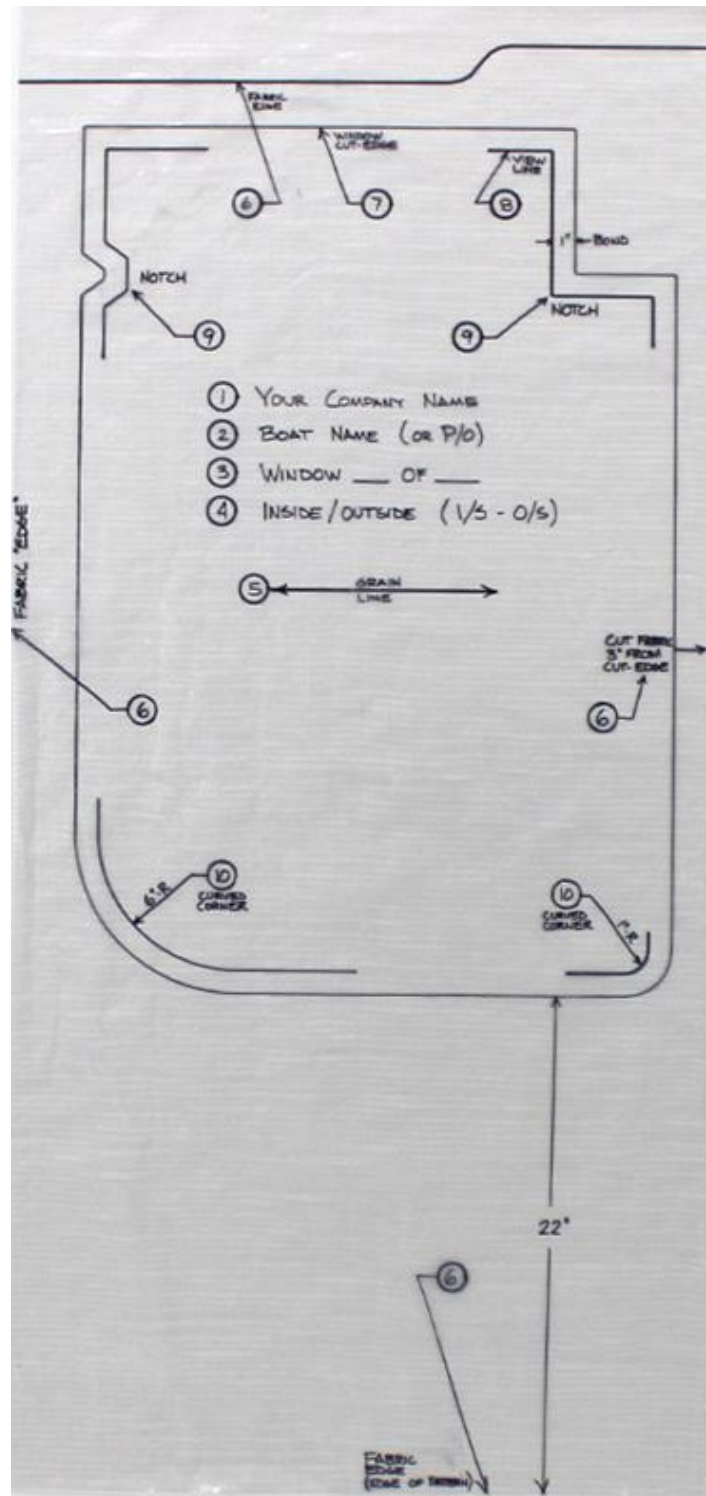 FABRIC
EDGE
WINDOW
CUT-EDGE
VIEW
LINE
6
7
8
1" BOND
NOTCH
NOTCH
9
9
1 YOUR COMPANY NAME
2 BOAT NAME (OR P/O)
3 WINDOW ___ OF ___
4 INSIDE/OUTSIDE (I/S - O/S)
FABRIC "EDGE"
5
GRAIN
LINE
CUT FABRIC
3" FROM
CUT-EDGE
6
6
10
CURVED
CORNER
6"R
10
CURVED
CORNER
1"R
22"
6
FABRIC
EDGE
(EDGE OF PATTERN)